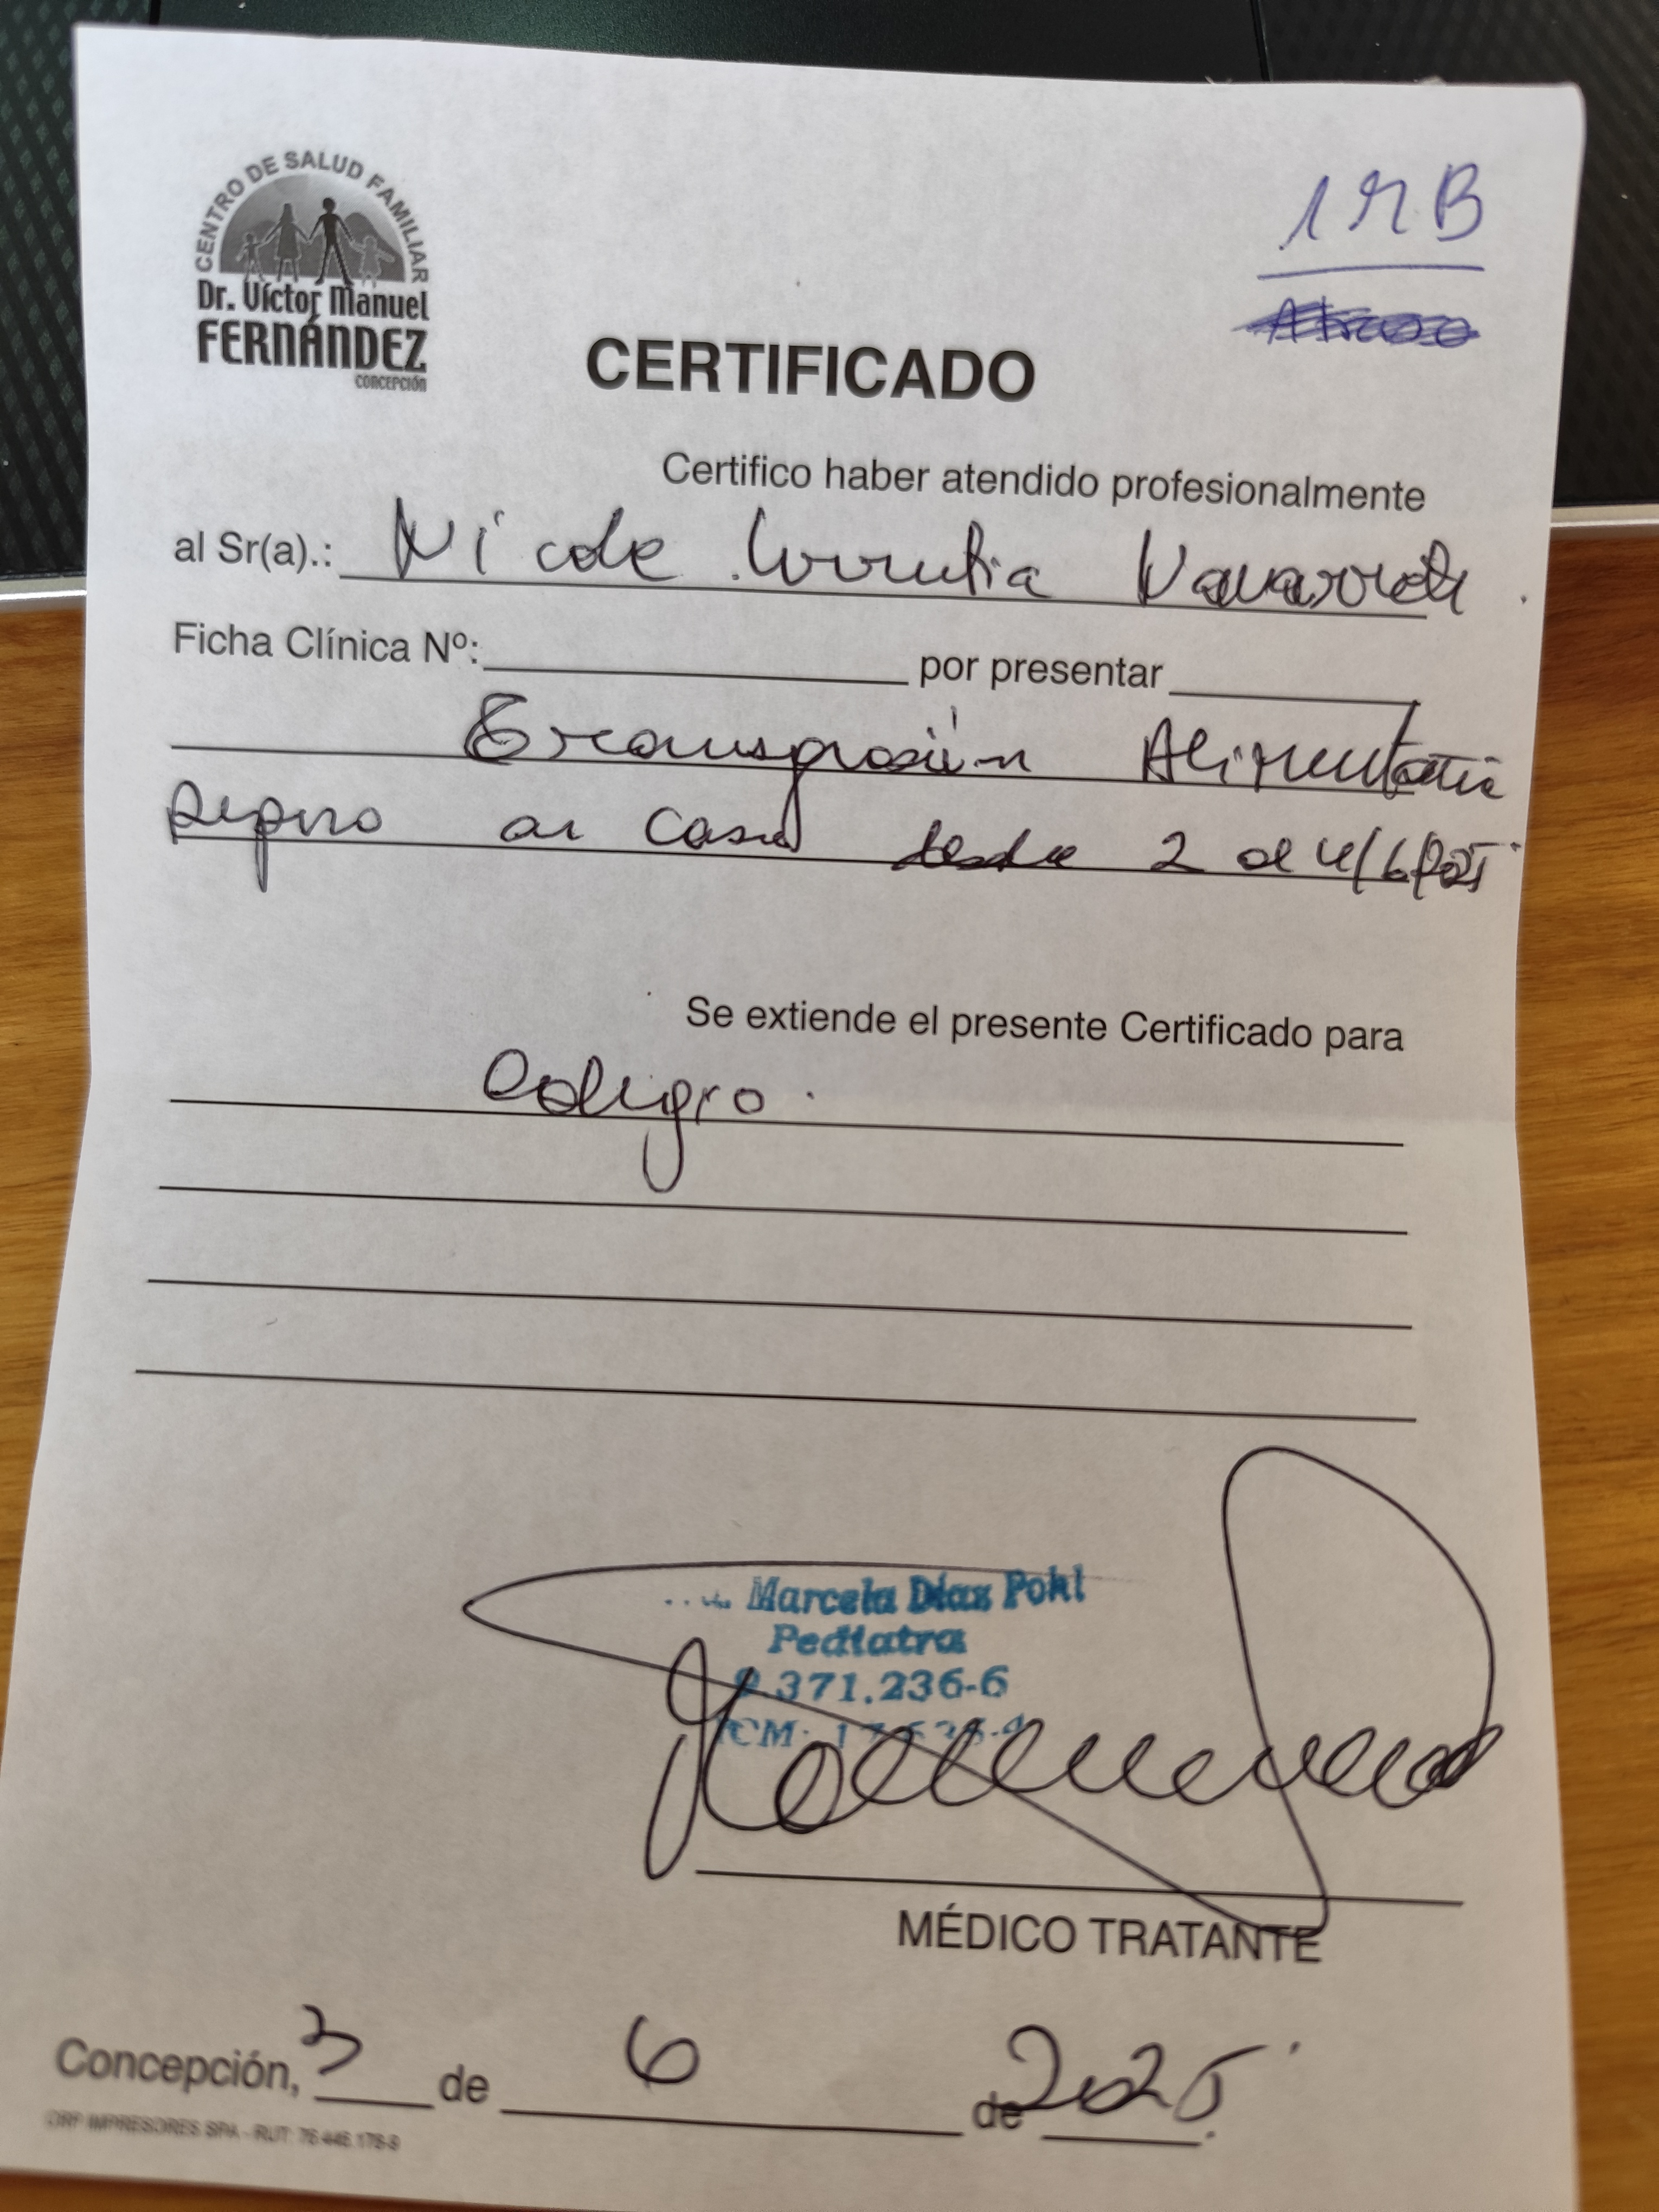 CENTRO DE SALUD FAMILIAR
Dr. Víctor Manuel
FERNÁNDEZ
CONCEPCIÓN
1 M B
Atraso
CERTIFICADO
Certifico haber atendido profesionalmente
al Sr(a).: Nicole Urrutia Navarrete
Ficha Clínica Nº: por presentar
Transgresión Alimentaria
Reposo en casa desde 2 al 4/6/2025
Se extiende el presente Certificado para
Colegio.
Marcela Díaz Pohl
Pediatra
9.371.236-6
MÉDICO TRATANTE
Concepción, 3 de 6 de 2025
ORP IMPRESORES SPA - RUT: 76.446.176-9